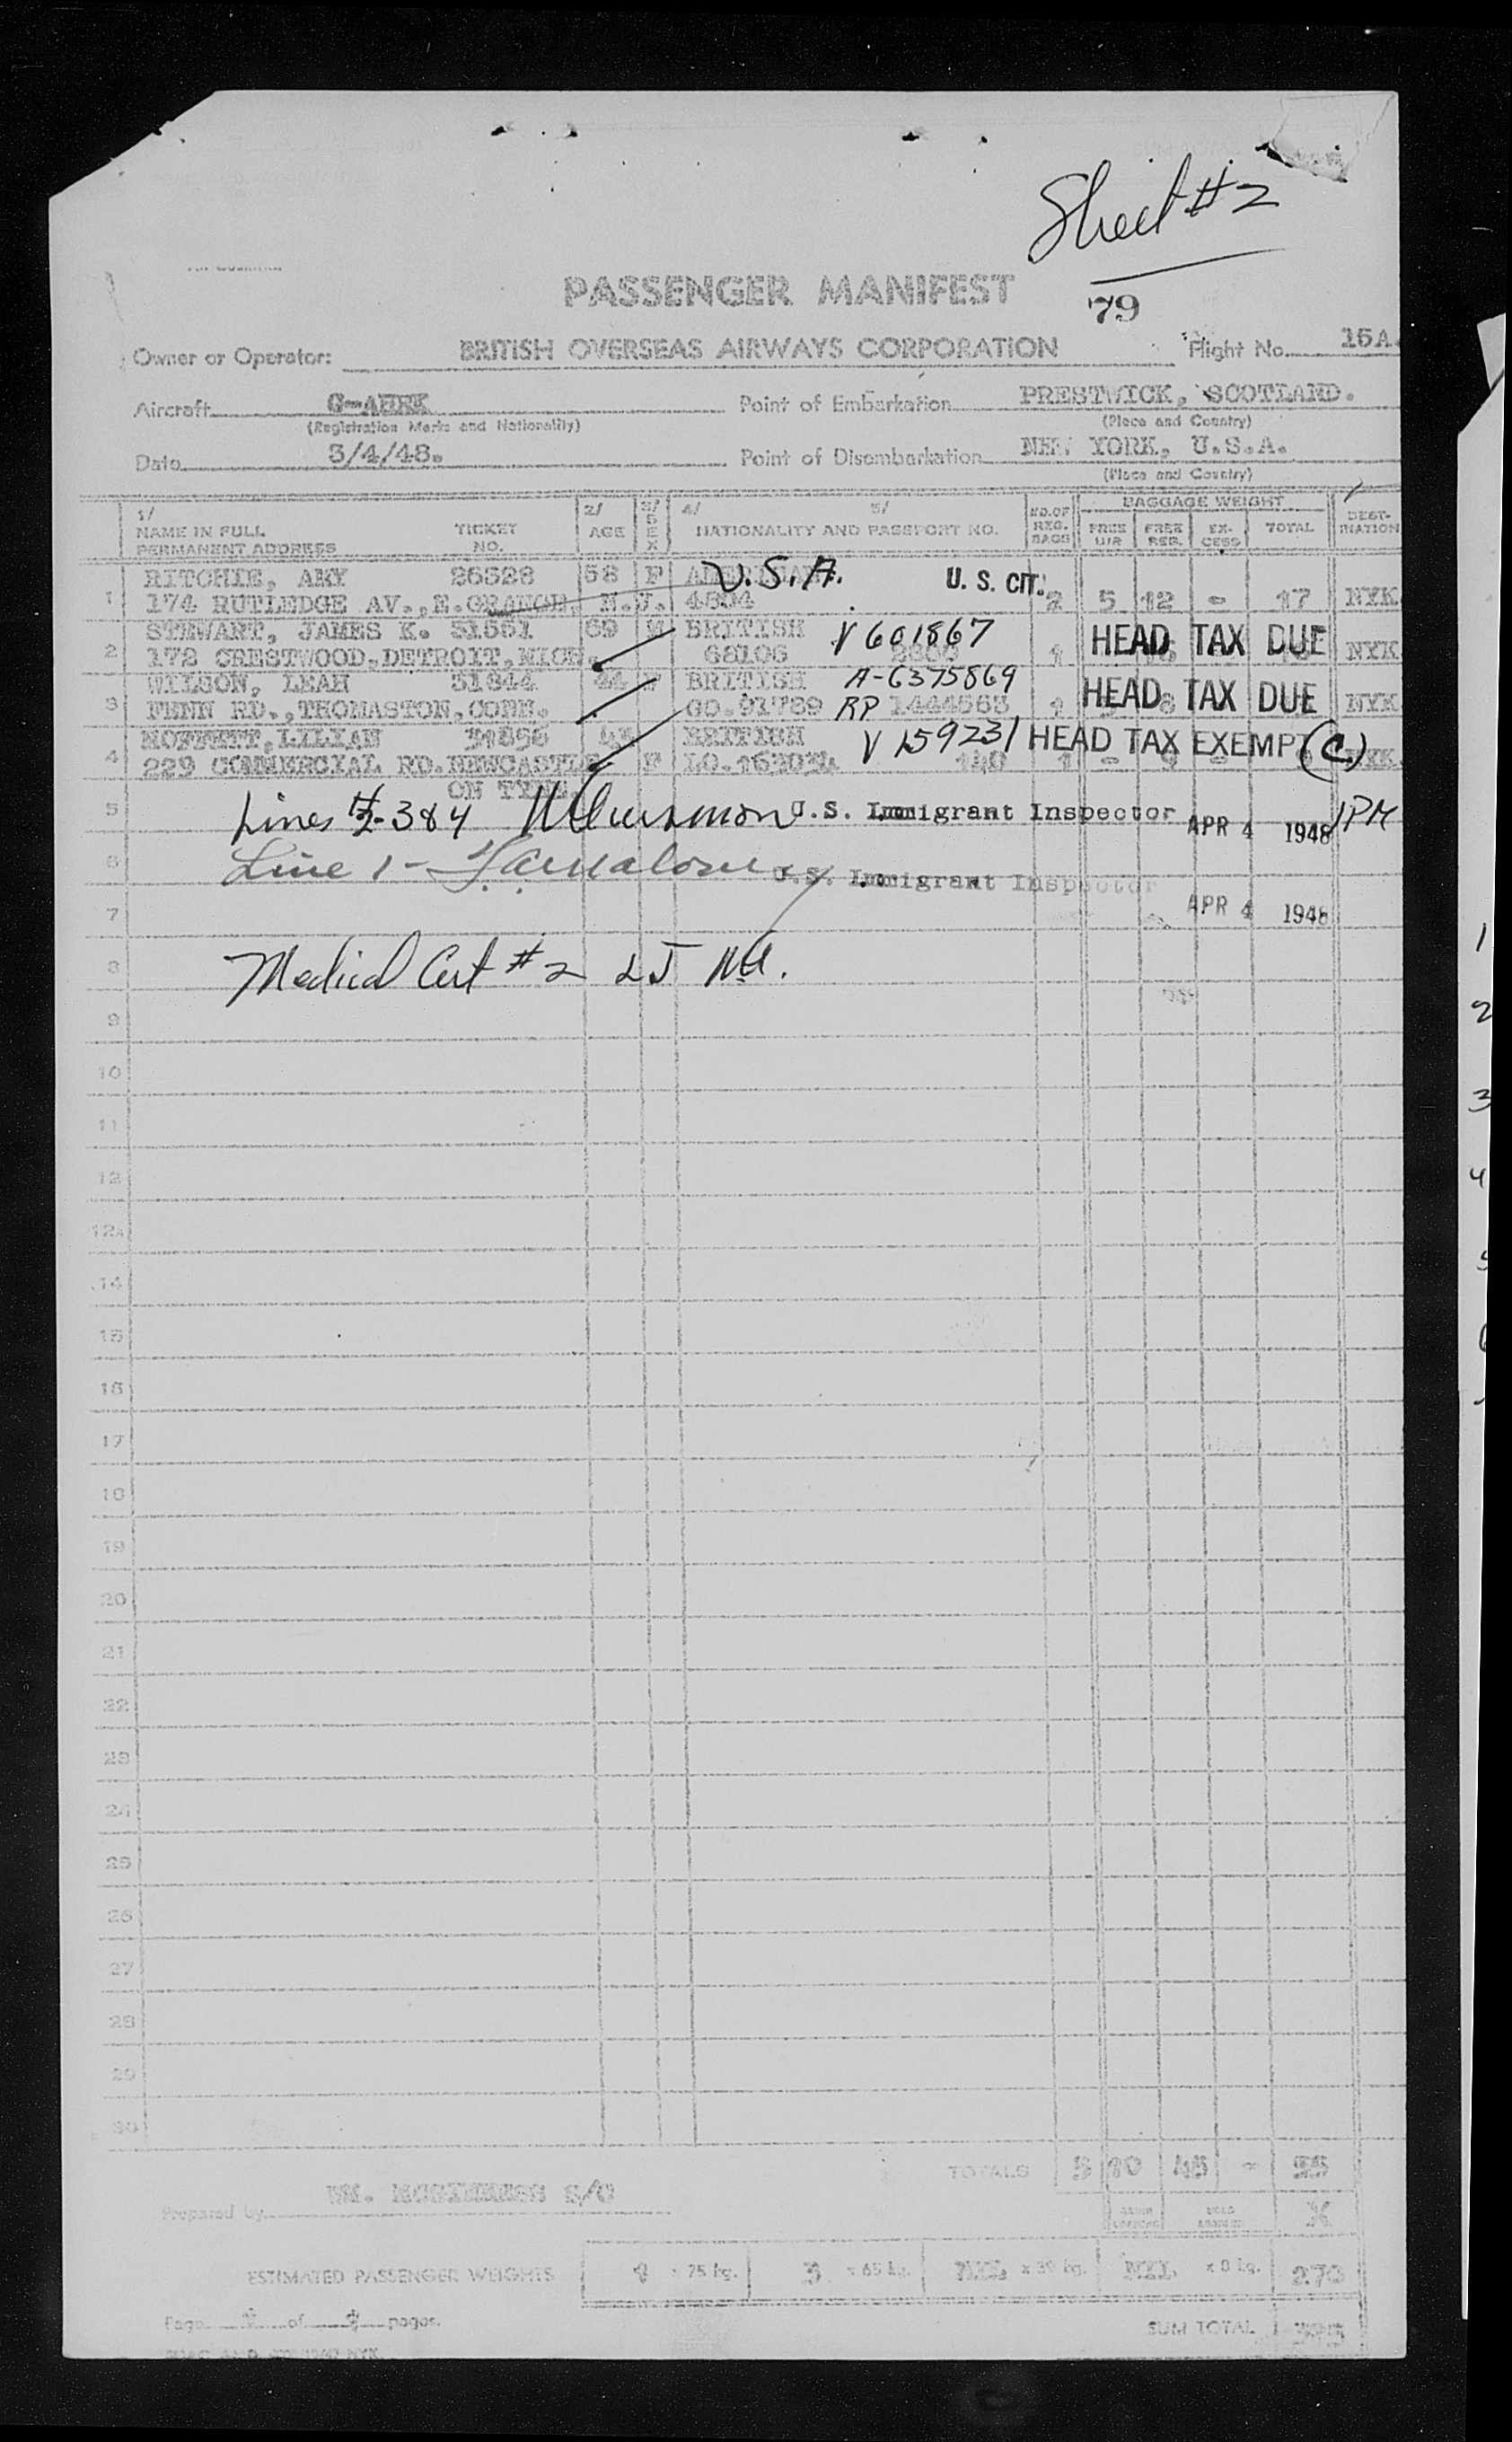 Sheet #2
PASSENGER MANIFEST
79
Owner or Operator: BRITISH OVERSEAS AIRWAYS CORPORATION Flight No. 15A.
Aircraft G-AHRK Point of Embarkation PRESTWICK, SCOTLAND.
(Registration Marks and Nationality) (Place and Country)
Date 3/4/48. Point of Disembarkation NEW YORK, U.S.A.
(Place and Country)
1/ 2/ 3/ 4/ 5/ NO. OF REG. BAGS BAGGAGE WEIGHT DESTINATION
NAME IN FULL TICKET AGE SEX NATIONALITY AND PASSPORT NO. FREE U/R FREE REG. EXCESS TOTAL
PERMANENT ADDRESS NO.
1 RITCHIE, AMY 26528 58 F AMERICAN. U.S.A. U. S. CIT.
174 RUTLEDGE AV.,E.ORANGE, N.J. 4804 2 5 12 - 17 NYK.
2 STEWART, JAMES K. 31551 69 M BRITISH V 601867 HEAD TAX DUE
172 CRESTWOOD,DETROIT,MICH. 68106 1 NYK
3 WILSON, LEAH 31844 44 F BRITISH A-6375869 HEAD TAX DUE
FENN RD.,THOMASTON,CONN. CO.91789 RP 1444563 1 8 NYK
4 MOFFETT,LILIAN BRITISH V 159231 HEAD TAX EXEMPT (C)
229 COMMERCIAL RD.NEWCASTLE F 1 - 9 - NYK.
ON TYNE.
5 Lines #2-3&4 U.S. Immigrant Inspector APR 4 1948 1PM
6 Line 1- U.S. Immigrant Inspector
7 APR 4 1948
8 Medical Cert #2
9
10
11
12
12A
14
15
16
17
18
19
20
21
22
23
24
25
26
27
28
29
30
TOTALS 5 10 45 - 55
Prepared by
ESTIMATED PASSENGER WEIGHTS 1 x 75 kg. 3 x 65 kg. NIL x 39 kg. NIL x 8 kg. 270
Page of pages.
SUM TOTAL